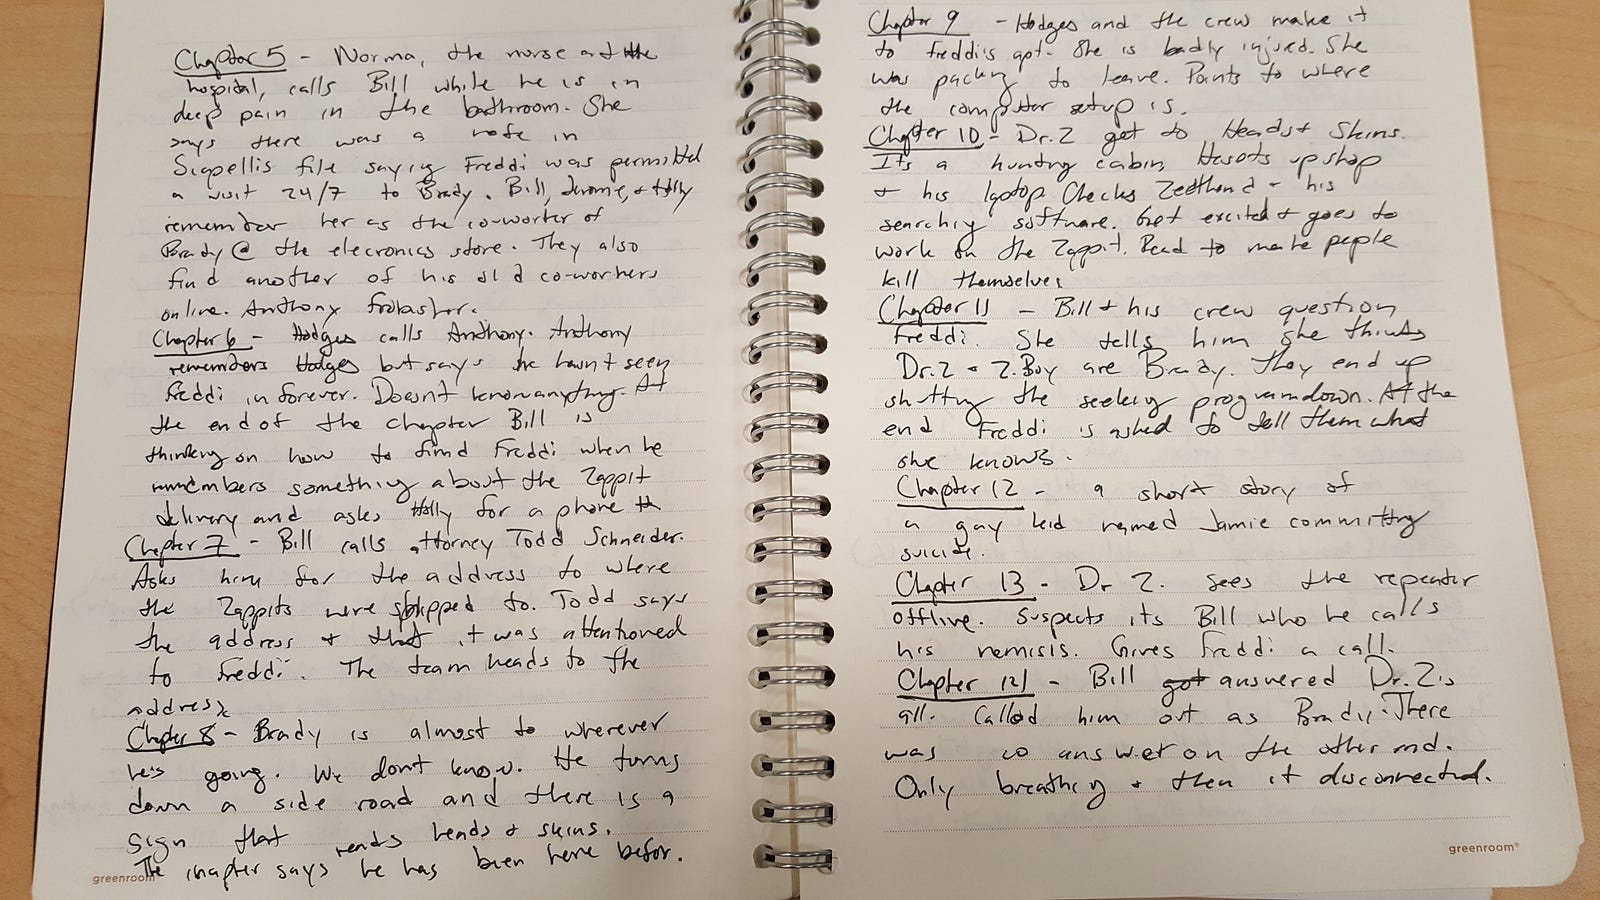 Chapter 5 - Norma, the nurse at the
hospital, calls Bill while he is in
deep pain in the bathroom. She
says there was a note in
file saying Freddi was permitted
a visit 24/7 to Brady. Bill, Jerome, + Holly
remember her as the co-worker of
Brady @ the elecronics store. They also
find another of his old co-workers
online. Anthony Frobasher.
Chapter 6 - Hodges calls Anthony. Anthony
remembers Hodges but says he hasn't seen
Freddi in forever. Doesn't know anything. At
the end of the chapter Bill is
thinking on how to find Freddi when he
remembers something about the Zappit
delivery and asks Holly for a phone #
Chapter 7 - Bill calls attorney Todd Schneider.
Asks him for the address to where
the Zappits were shipped to. Todd says
the address + that it was attentioned
to Freddi. The team heads to the
address
Chapter 8 - Brady is almost to wherever
he's going. We don't know. He turns
down a side road and there is a
sign that reads heads + skins.
The chapter says he has been here befor.
greenroom
Chapter 9 - Hodges and the crew make it
to freddi's apt. She is badly injured. She
was packing to leave. Points to where
the computer setup is.
Chapter 10 - Dr. Z get to Heads + Skins.
It's a hunting cabin, He sets up shop
+ his laptop. Checks Zeetheend + his
searching software. Get excited + goes to
work on the Zappit. Read to make people
kill themselves
Chapter 11 - Bill + his crew question
Freddi. She tells him she thinks
Dr. Z + Z.Boy are Brady. They end up
shutting the seeking program down. At the
end Freddi is asked to tell them what
she knows.
Chapter 12 - a short story of
a gay kid named Jamie committing
suicide.
Chapter 13 - Dr Z. sees the repeater
offline. Suspects its Bill who he calls
his nemisis. Gives Freddi a call.
Chapter 14 - Bill got answered Dr. Z's
all. Called him out as Brady. There
was no answer on the other end.
Only breathing + then it disconnected.
greenroom®